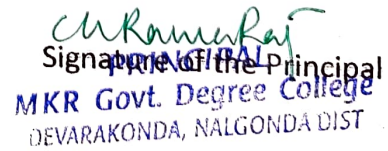 Signature of the Principal
PRINCIPAL
MKR Govt. Degree College
DEVARAKONDA, NALGONDA DIST